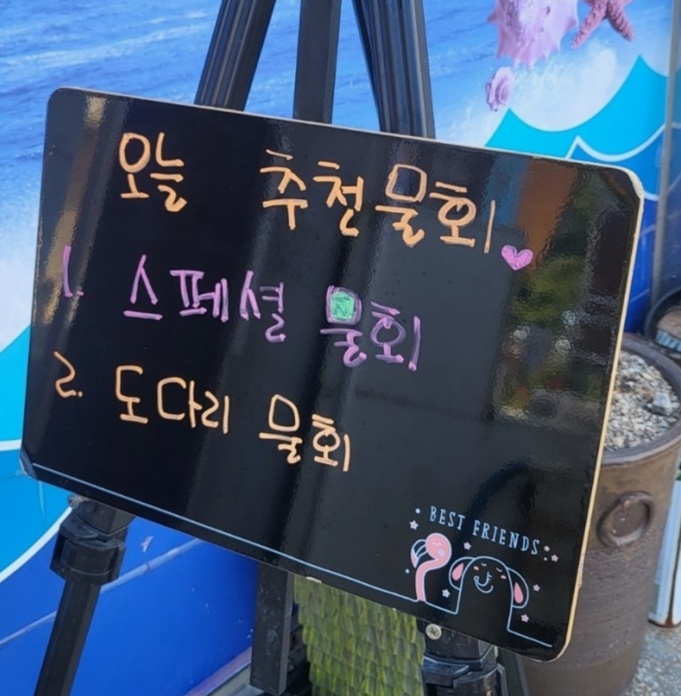 오늘 추천물회
1. 스페셜 물회
2. 도다리 물회
BEST FRIENDS